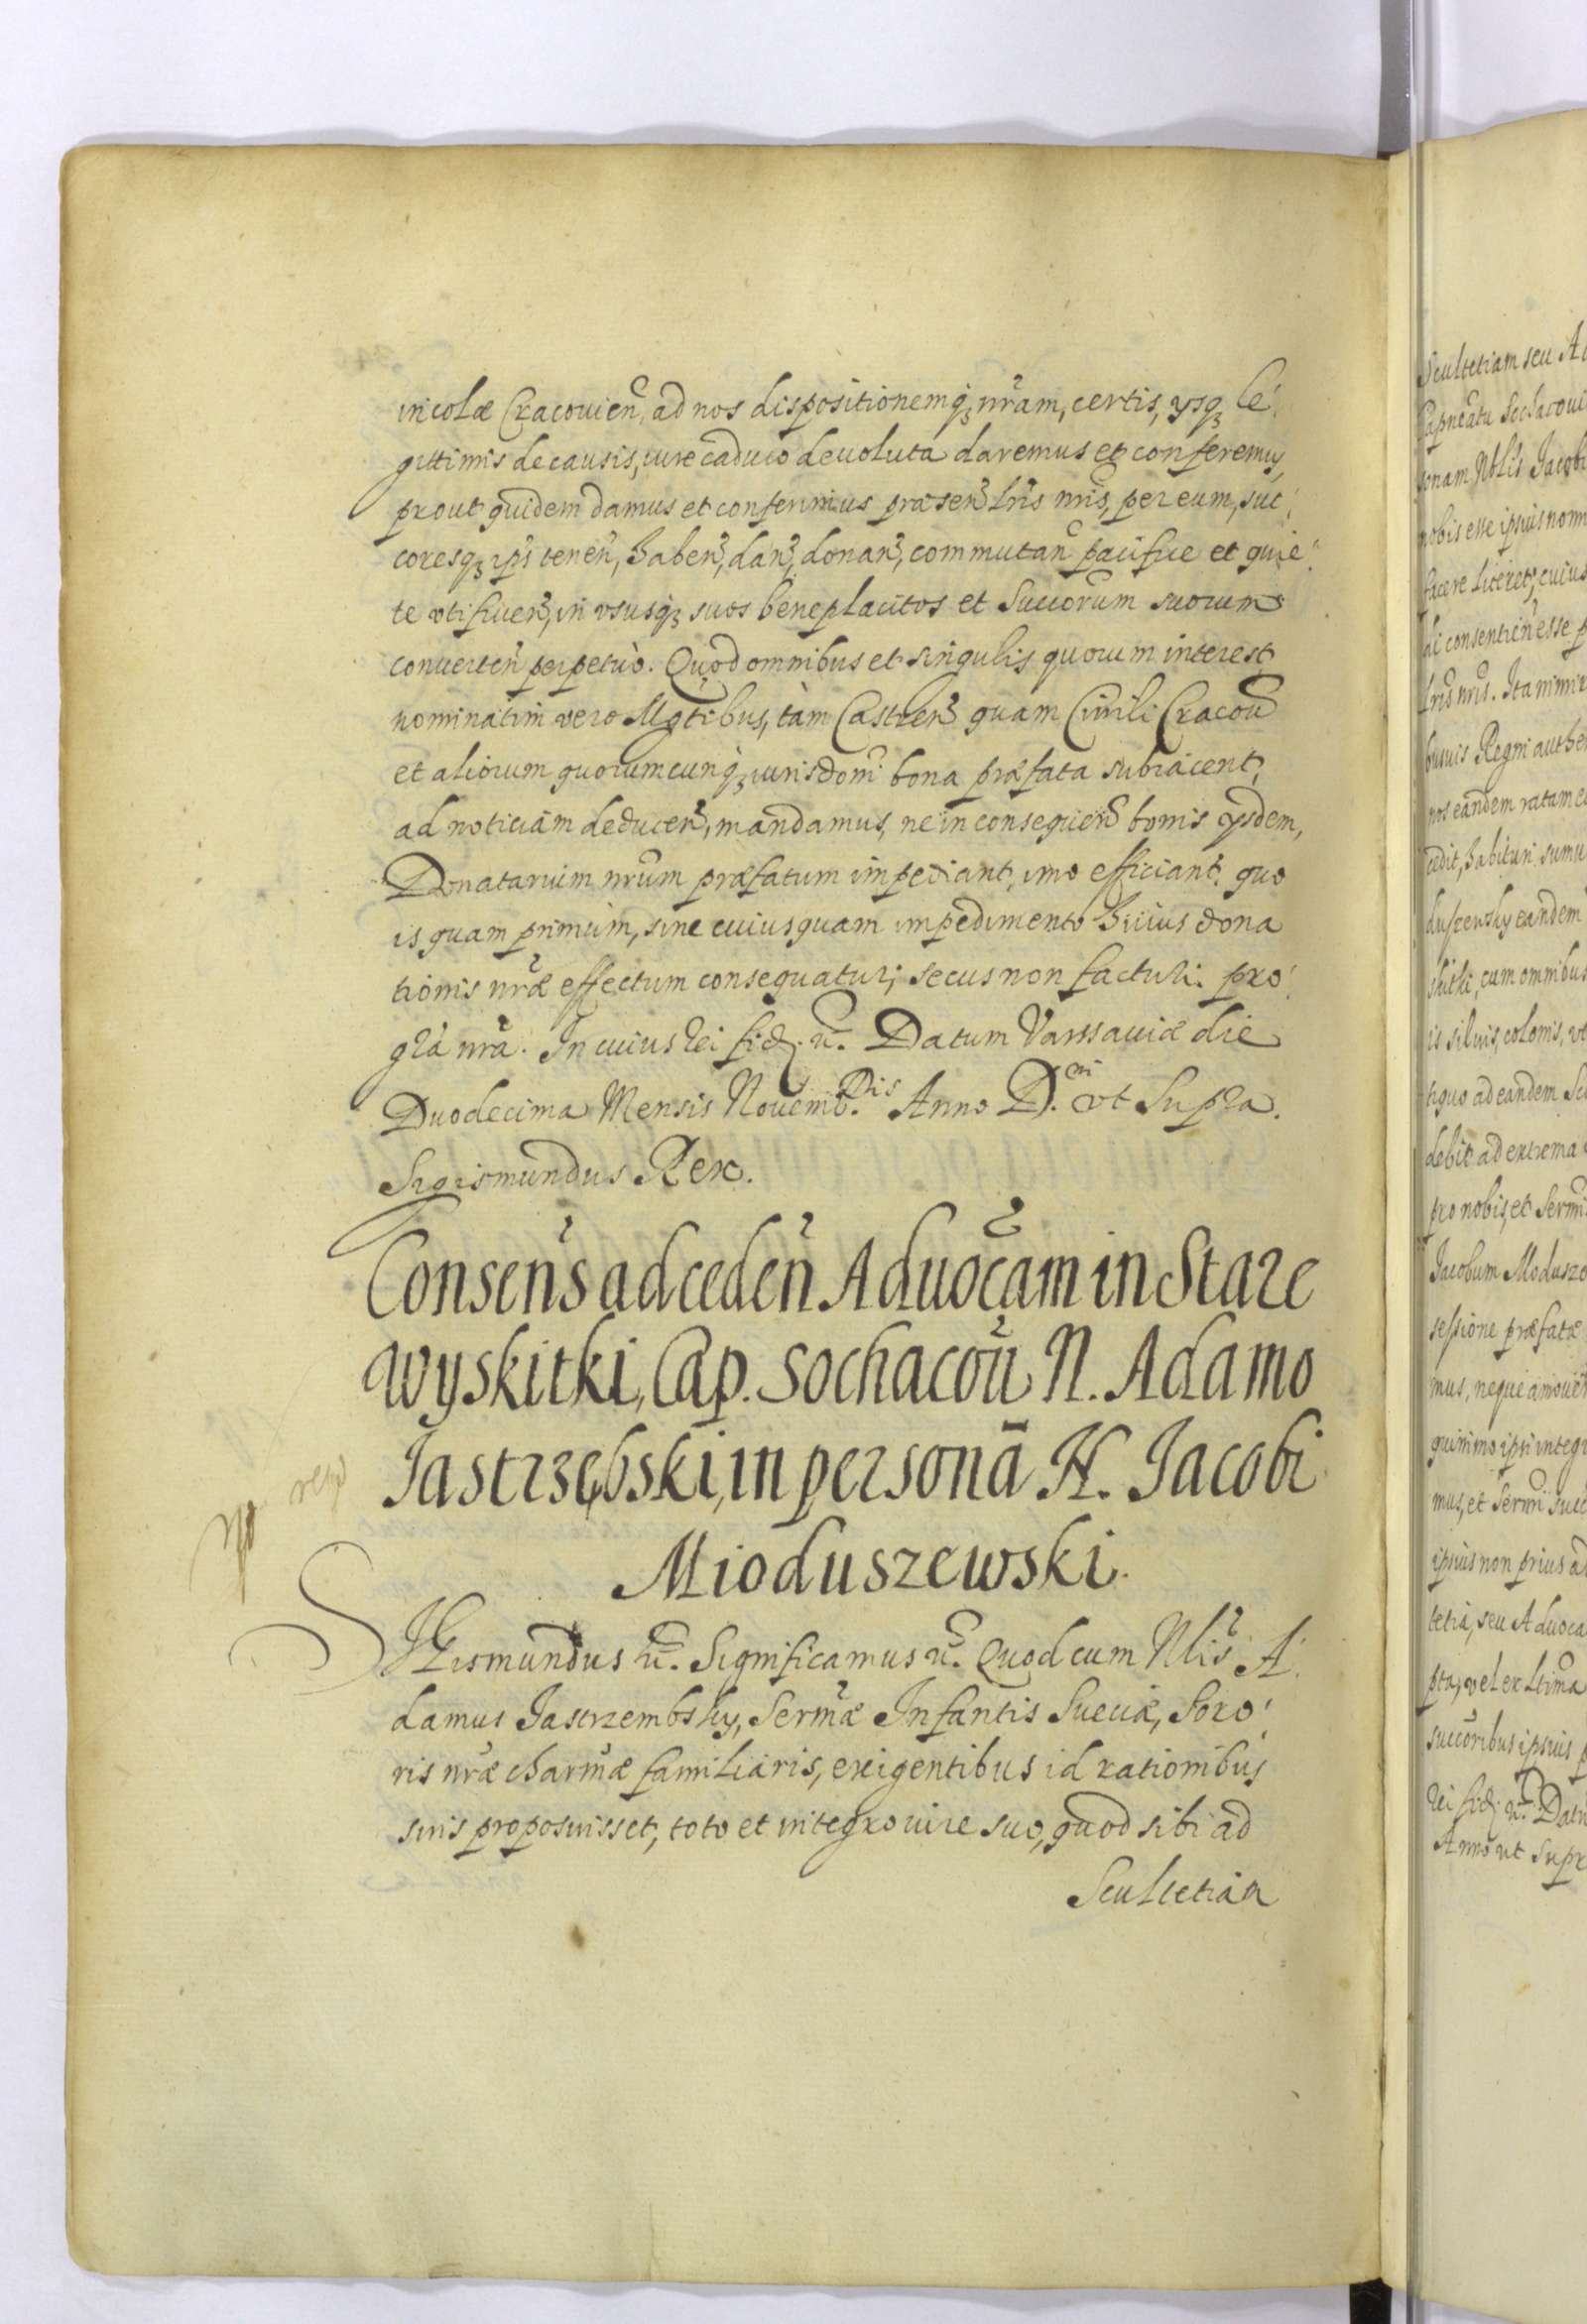 incolæ Cracouien, ad nos dispositionemq; nram, certis, ysq; le
gittimis de causis, iure caduco deuoluta daremus et conferemus,
prout quidem damus et conferimus præsen lris nris, per eum, suc
coresq; ips tenen, haben, dan, donan, commutan pacifice et quie
te vti fruen, in vsusq; suos beneplacitos et Succorum suorum
conuerten perpetuò. Quod omnibus et singulis quorum interest
nominatim vero Mgtibus, tàm Castren quam Ciuili Cracou
et aliorum quorumcunq; iurisdoni bona præfata subiacent,
ad noticiam deducen, mandamus, ne in consequen bonis ysdem,
Donatarium nrum præfatum impediant, imo efficiant, quo
is quam primùm, sine cuiusquam impedimento huius dona
tionis nræ effectum consequatur; secus non facturi. pro
gra nra. In cuius rei fid. &. Datum Varssauiæ die
Duodecima Mensis Nouemb.ris Anno D.ni vt Supra.
Sigismundus Rex.
Consens ad ceden Aduocam in Stare
Wyskitki, Cap. Sochacou N. Adamo
Jastrzębski, in personā N. Jacobi
Mioduszewski.
SIGismundus &. Significamus &. Quod cum Nlis A
damus Jastrzembsky, Sermæ Infantis Sueciæ, Soro
ris nræ charmæ familiaris, exigentibus id rationibus
suis proposuisset, toto et integro iure suo, quod sibi ad
Scultetiam
Scultetiam seu Ad
Capneatu Sochacoui
sonam Nblis Jacobi
nobis esse ipsius nomi
facere liceret, cuius
di consentien esse p
lris nris. Ita nimir
busuis Regni authen
nos eandem ratam et
cedit, habituri sumu
duszewsky eandem
skitki, cum omnibus
is siluis, colonis, vt
tiquo ad eandem Sc
debit ad extrema
pro nobis, et Sermi
Jacobum Modusze
sessione præfatæ
mus, neque amouen
quinimo ipsi integr
mus, et Sermi succ
ipsius non prius ad
tetia, seu Aduoca
pta, vel ex ltima
succoribus ipsius p
rei fid. &. Datu
Anno vt Supr